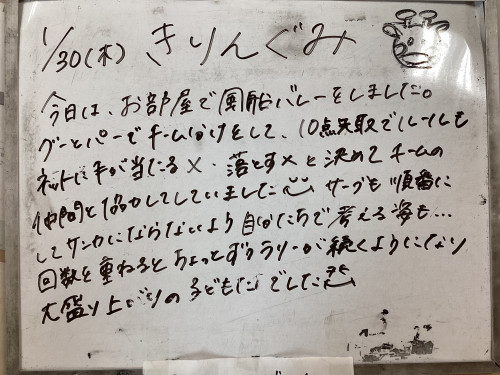 1/30(木) きりんぐみ
今日は、お部屋で風船バレーをしました。
グーとパーでチーム分けをして、10点先取でルールも
ネットに手が当たる×、落とす×と決めてチームの
仲間と協力してしていました サーブも順番に
してケンカにならないよう自分たちで考える姿も…
回数を重ねるとちょっとずつラリーが続くようになり
大盛り上がりの子どもたちでした